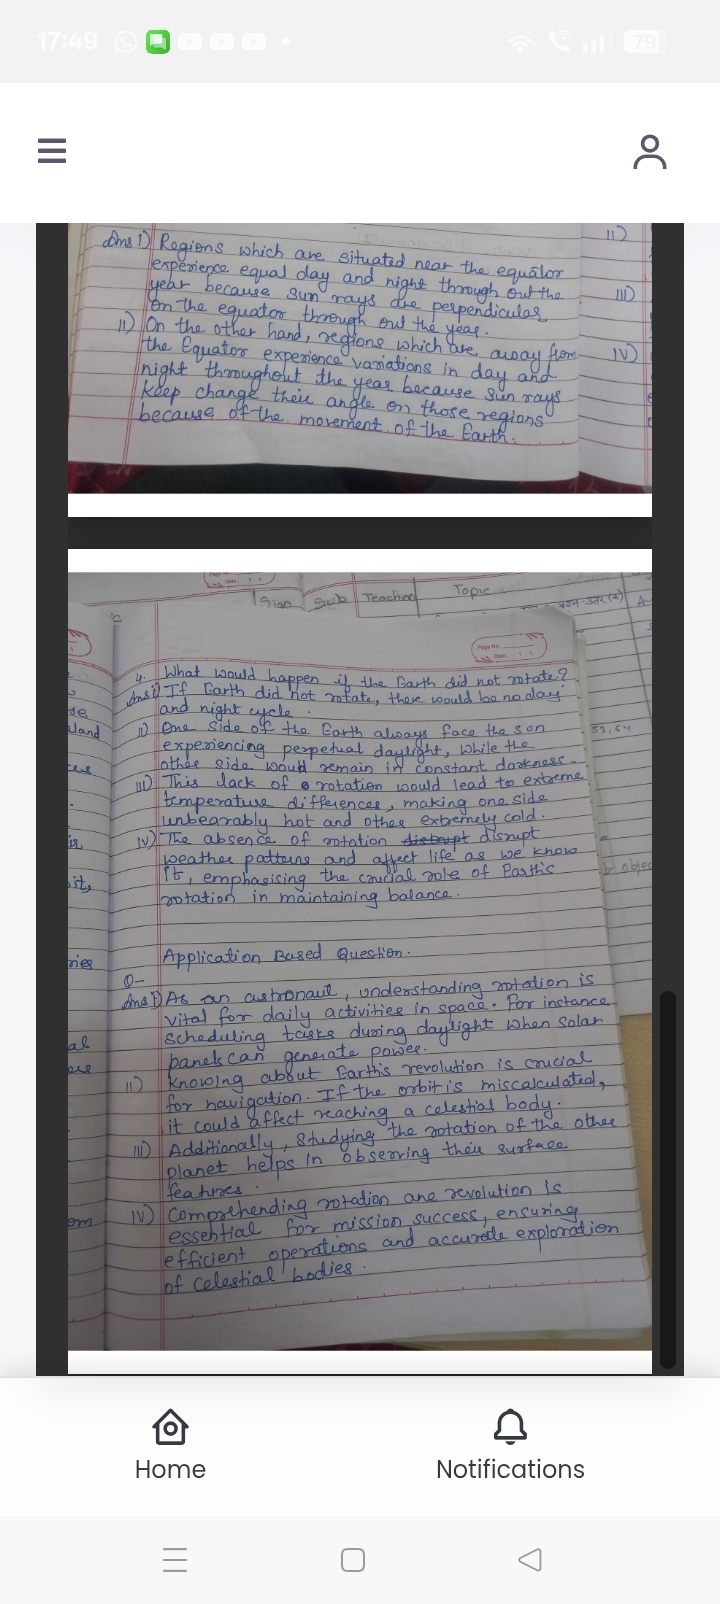 17:49
79
Ans i) Regions which are situated near the equator
experience equal day and night through out the
year because sun rays are perpendicular
on the equator through out the year.
II) On the other hand, regions which are away from
the Equator experience variations in day and
night throughout the year because sun rays
Keep change their angle on those regions
because of the movement of the Earth.
II)
III)
IV)
Sign Sub Teacher Topic
Page No
Date:
4. What would happen if the Earth did not rotate?
Ans i) If Earth did not rotate, there would be no day
and night cycle.
II) One side of the Earth always face the son
experiencing perpetual daylight, while the
other side would remain in constant darkness.
III) This lack of rotation would lead to extreme
temperature differences, making one side
unbearably hot and other extremely cold.
IV) The absence of rotation disrupt
weather patterns and affect life as we know
it, emphasising the crucial role of Earth's
rotation in maintaining balance.
Application Based Question.
Q-
Ans i) As an astronaut, understanding rotation is
vital for daily activities in space. For instance
scheduling tasks during daylight when Solar
panels can generate power.
II) Knowing about Earth's revolution is crucial
for navigation. If the orbit is miscalculated,
it could affect reaching a celestial body.
III) Additionally, Studying the rotation of the other
planet helps in observing their surface
features.
IV) Comprehending rotation and revolution is
essential for mission success, ensuring
efficient operations and accurate exploration
of celestial bodies.
53, 54
Home
Notifications